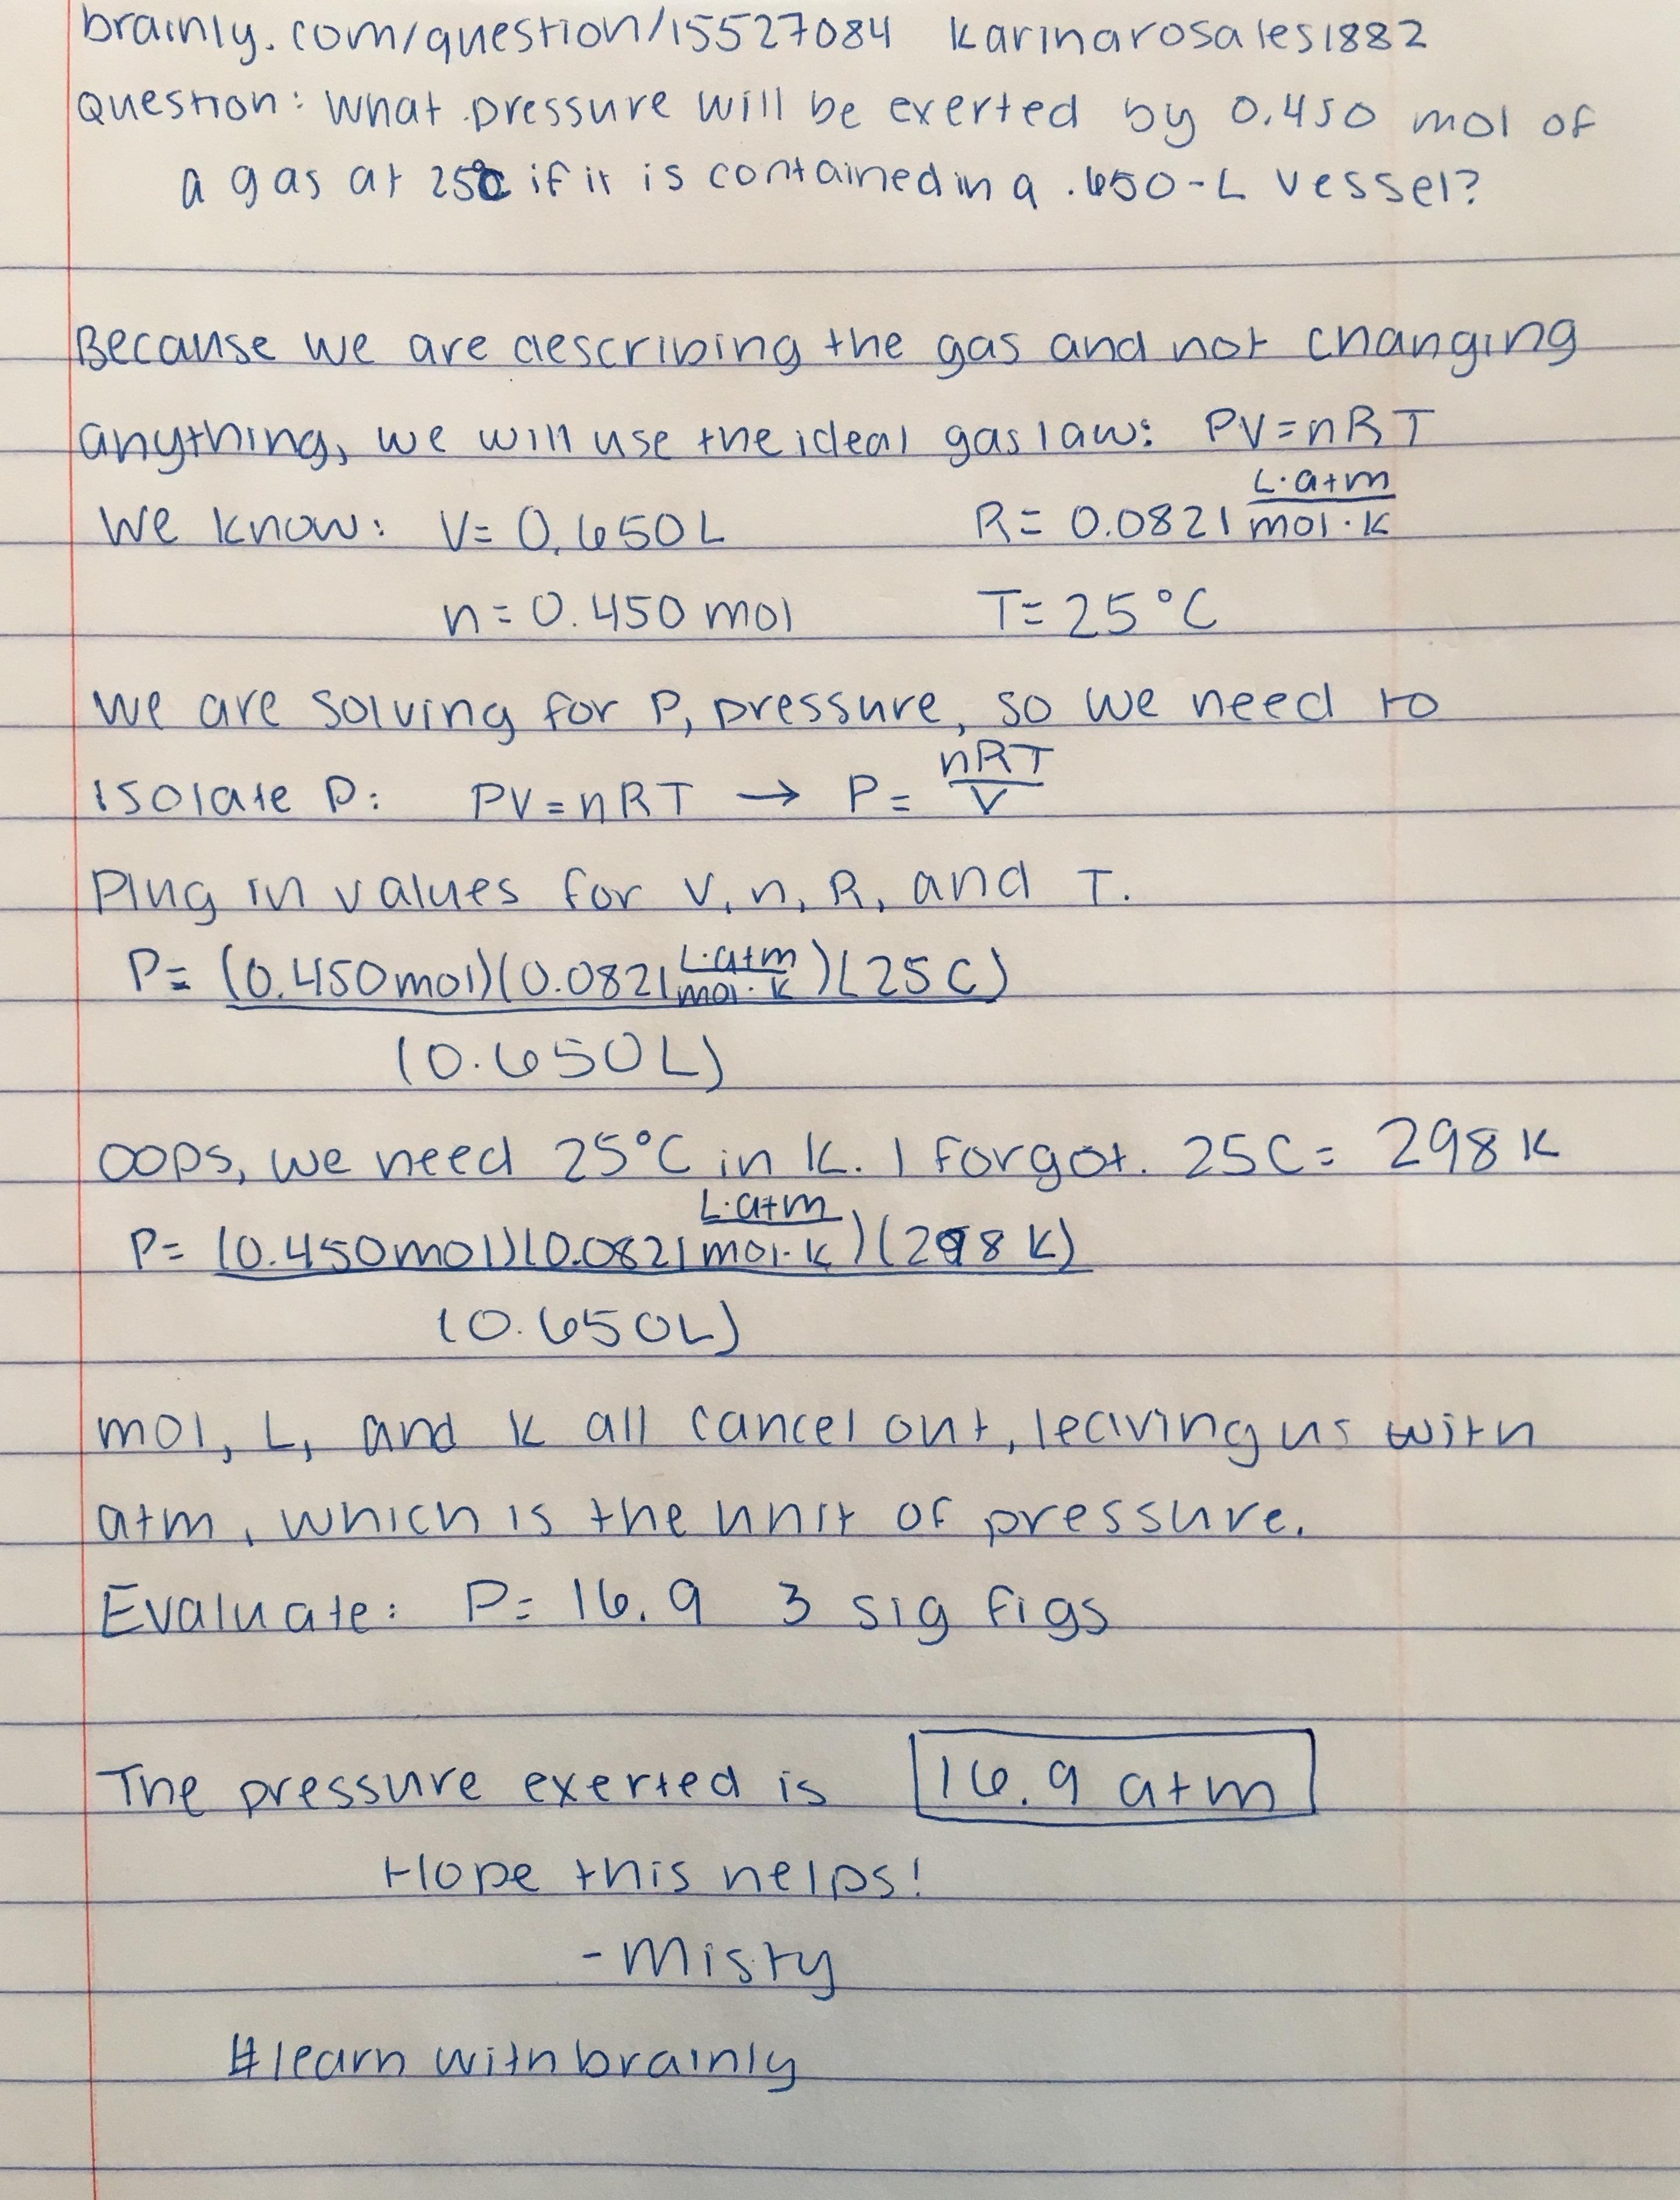 brainly.com/question/15527084 karinarosales1882
Question: What pressure will be exerted by 0.450 mol of
a gas at 25°C if it is contained in a .650-L vessel?
Because we are describing the gas and not changing
anything, we will use the ideal gas law: PV=nRT
We know: V= 0.650L R= 0.0821 L·atm/mol·K
n=0.450 mol T=25°C
We are solving for P, pressure, so we need to
isolate P: PV=nRT → P= nRT/V
Plug in values for V, n, R, and T.
P= (0.450mol)(0.0821 L·atm/mol·K)(25C)
(0.650L)
Oops, we need 25°C in K. I forgot. 25C= 298K
P= (0.450mol)(0.0821 L·atm/mol·K)(298K)
(0.650L)
mol, L, and K all cancel out, leaving us with
atm, which is the unit of pressure.
Evaluate: P= 16.9 3 sig figs
The pressure exerted is 16.9 atm
Hope this helps!
-Misty
#learn with brainly